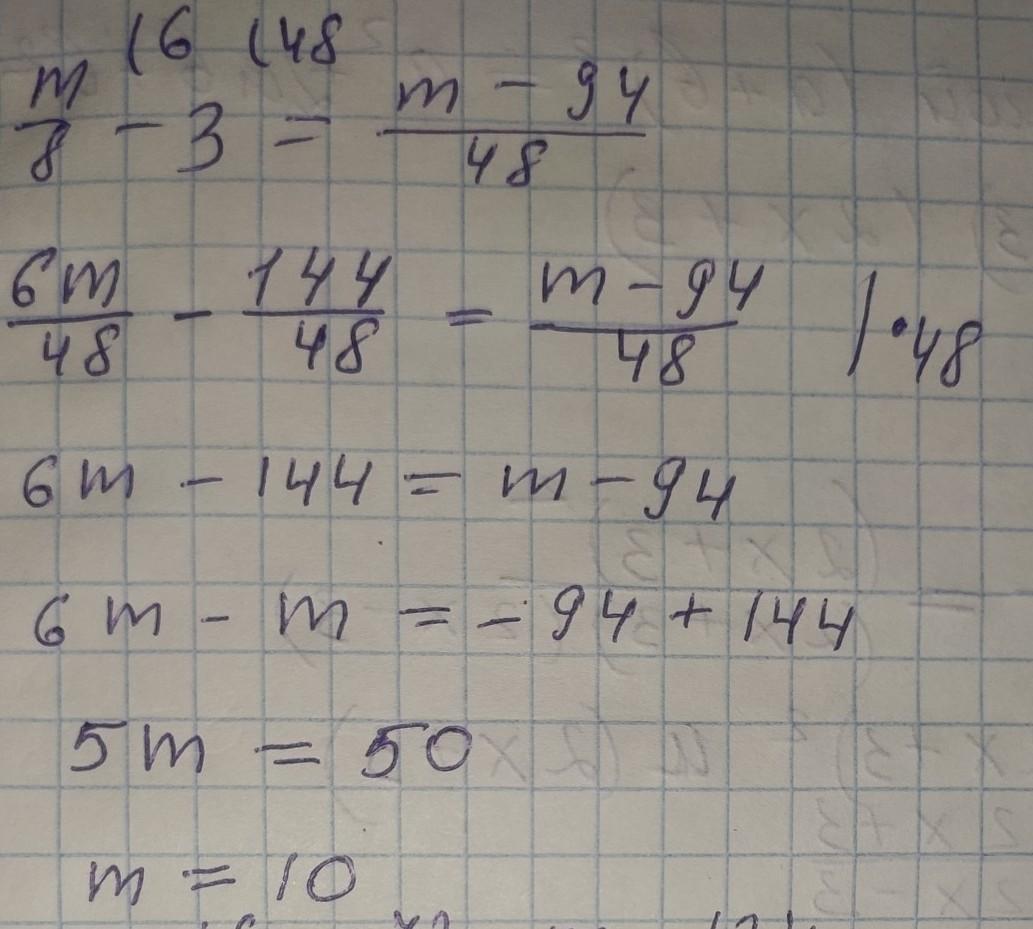 (6 (48
m/8 - 3 = (m - 94)/48
6m/48 - 144/48 = (m - 94)/48 | • 48
6m - 144 = m - 94
6m - m = - 94 + 144
5m = 50
m = 10